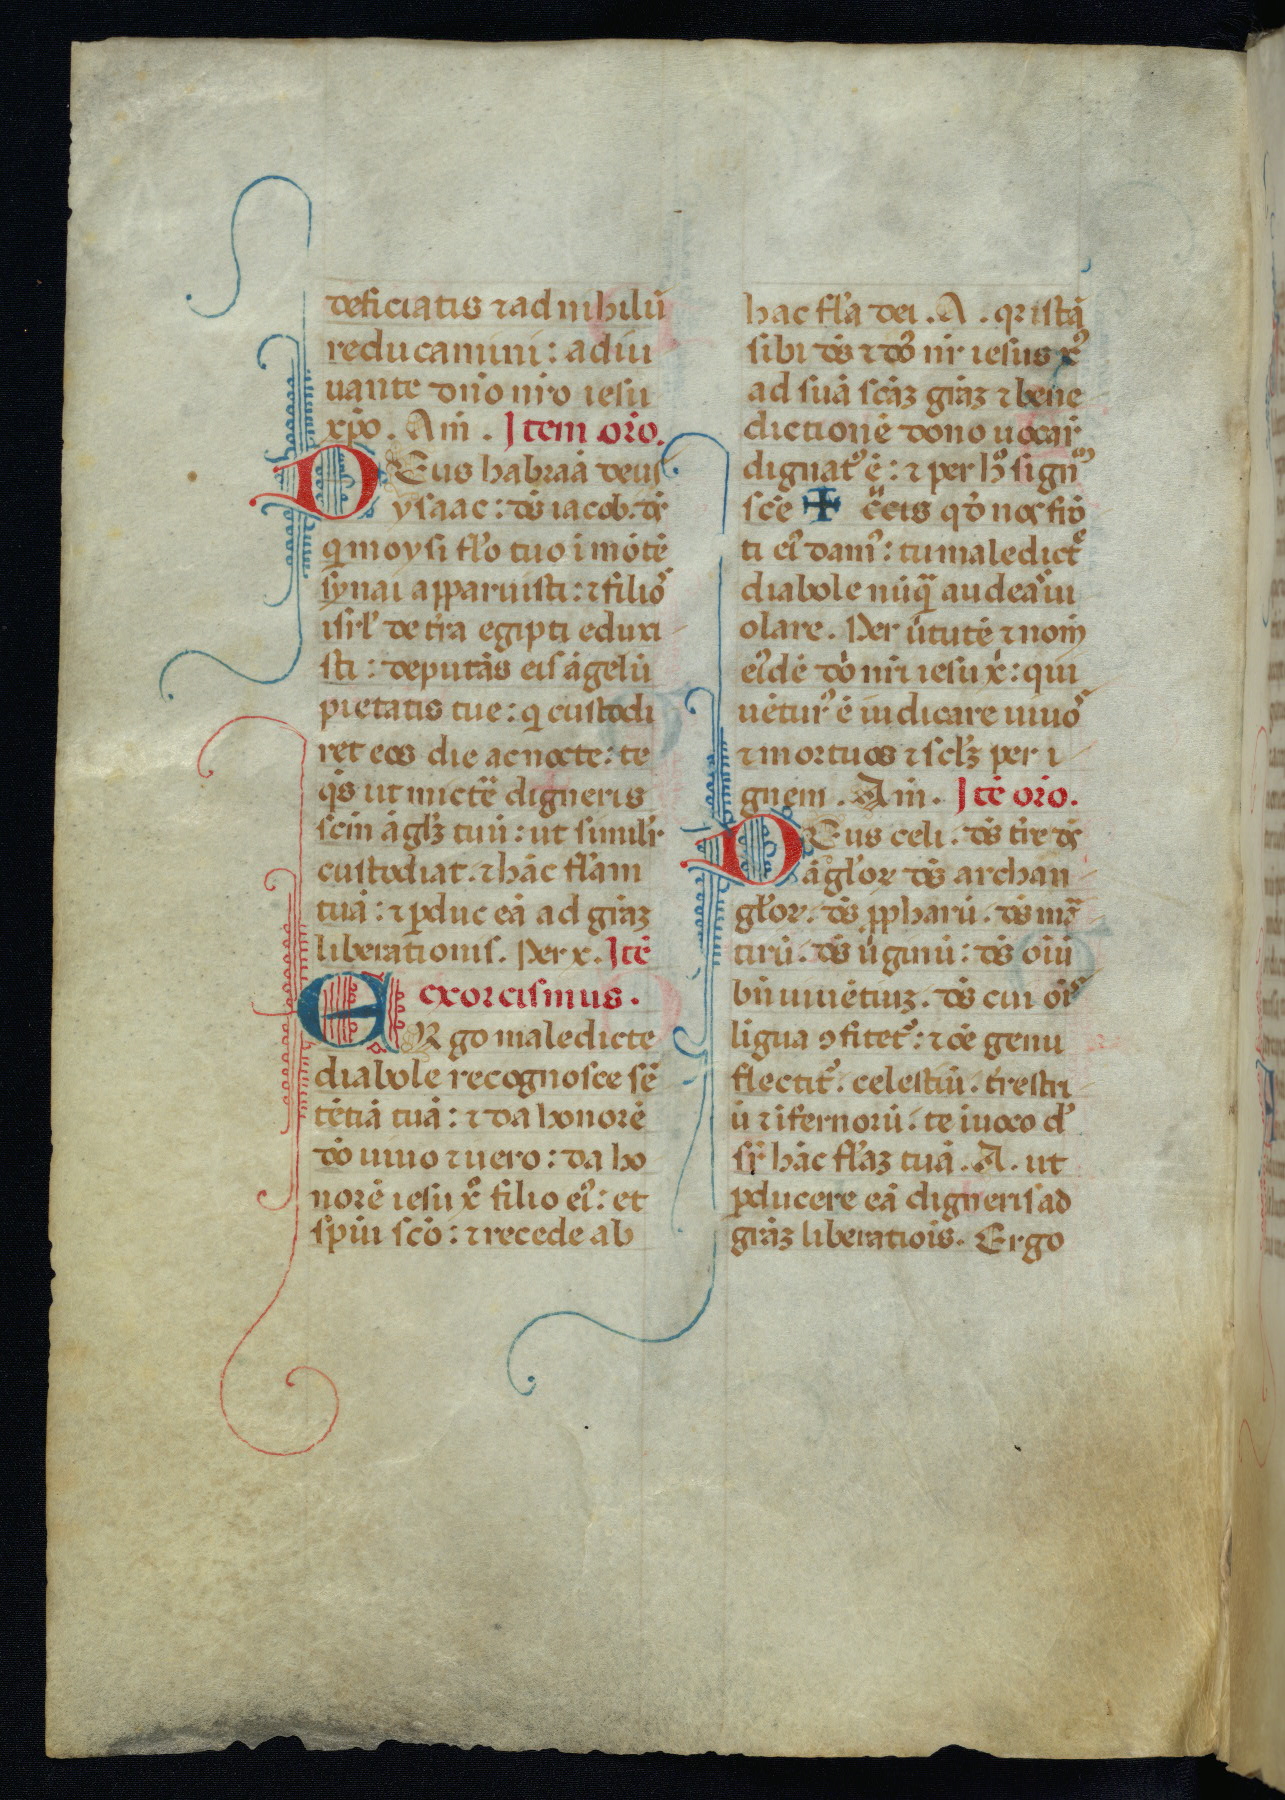 deficiatis ⁊ ad nihilū
reducamini: adiu
uante dn̄o nr̄o iesu
xp̄o. Am̄. Item or̄o.
DEus habraā deus
ysaac: ds̄ iacob. ds̄
q̄ moysi fl̓o tuo ī mōtē
synai apparuisti: ⁊ filio᷒
isrl̓ de t̄ra egipti eduxi
sti: deputās eis āgelū
pietatis tue: q̄ custodi
ret eos die ac nocte: te
qs̄ ut mictē digneris
scm̄ āglꝫ tuū: ut simil̓r
custodiat. ⁊ hāc fl̓am
tuā: ⁊ ꝑduc eā ad grāꝫ
liberationis. Per x. Itē
exorcismus.
ERgo maledicte
diabole recognosce sē
tētiā tuā: ⁊ da honorē
dō uiuo ⁊ uero: da ho
norē iesu xº filio ei᷒: et
spūi scō: ⁊ recede ab
hac fl̓a dei. A. qꝛ istā
sibi ds̄ ⁊ do᷒ nr̄ iesus x᷒
ad suā scāꝫ grāꝫ ⁊ bene
dictionē dono uocar̄
dignat᷒ ē: ⁊ per hº signū
scē ✠ c̄eis qḋ nos frō
ti ei᷒ dam᷒: tu maledicte
diabole nūq̄ audeas ui
olare. Per ūtutē ⁊ nom̄
ei᷒dē dō nr̄i iesu x̄: qui
uētur᷒ ē iudicare uiuo᷒
⁊ mortuos ⁊ sclꝫ per i
gnem. Am̄. Itē or̄o.
DEus celi. ds̄ t̄re ds̄
āgl̓oꝝ ds̄ archan
gl̓oꝝ. ds̄ ꝓpharū. ds̄ mar
tirū. ds̄ ūginū: ds̄ oīū
bn̄ uiuētiuꝫ. ds̄ cui oīs
līgua ꝯfitet᷒: ⁊ oē genu
flectit᷒. celestiū. t̄restri
ū ⁊ īfernorū. te īuoco d᷒
sr̄ hāc fl̓aꝫ tuā. A. ut
ꝑducere eā digneris ad
grāꝫ liberatiōis. Ergo